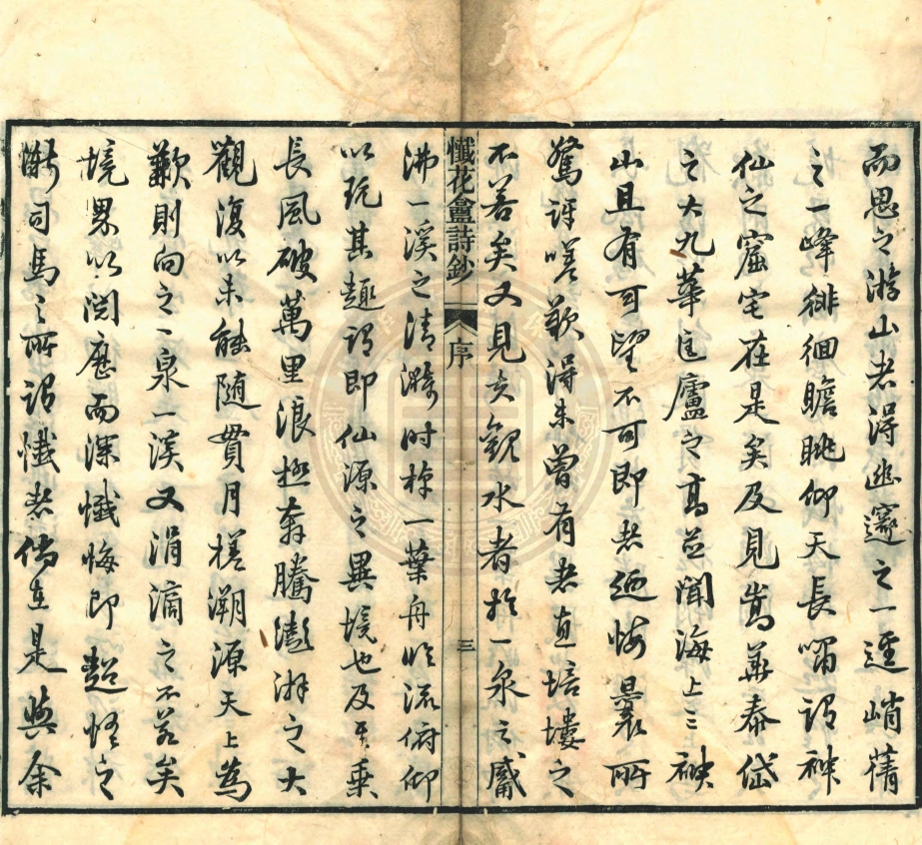 而思之游山者得幽邃之一逕峭蒨
之一峰徘徊瞻眺仰天長嘯謂神
仙之窟宅在是矣及見嵩華泰岱
之大九華匡廬之高並聞海上三神
山且有可望不可即者迺悔曩所
驚訝嗟歎得未曾有者直培塿之
不若矣又見夫觀水者於一泉之觱
懺花盦詩鈔 序 三
沸一溪之清漪時棹一葉舟臨流俯仰
以玩其趣謂即仙源之異境也及其乘
長風破萬里浪極奔騰澎湃之大
觀復以未能隨貫月槎溯源天上為
歉則向之一泉一溪又涓滴之不若矣
境界以閱歷而深懺悔即超悟之
漸司馬之所謂懺者倘在是與余